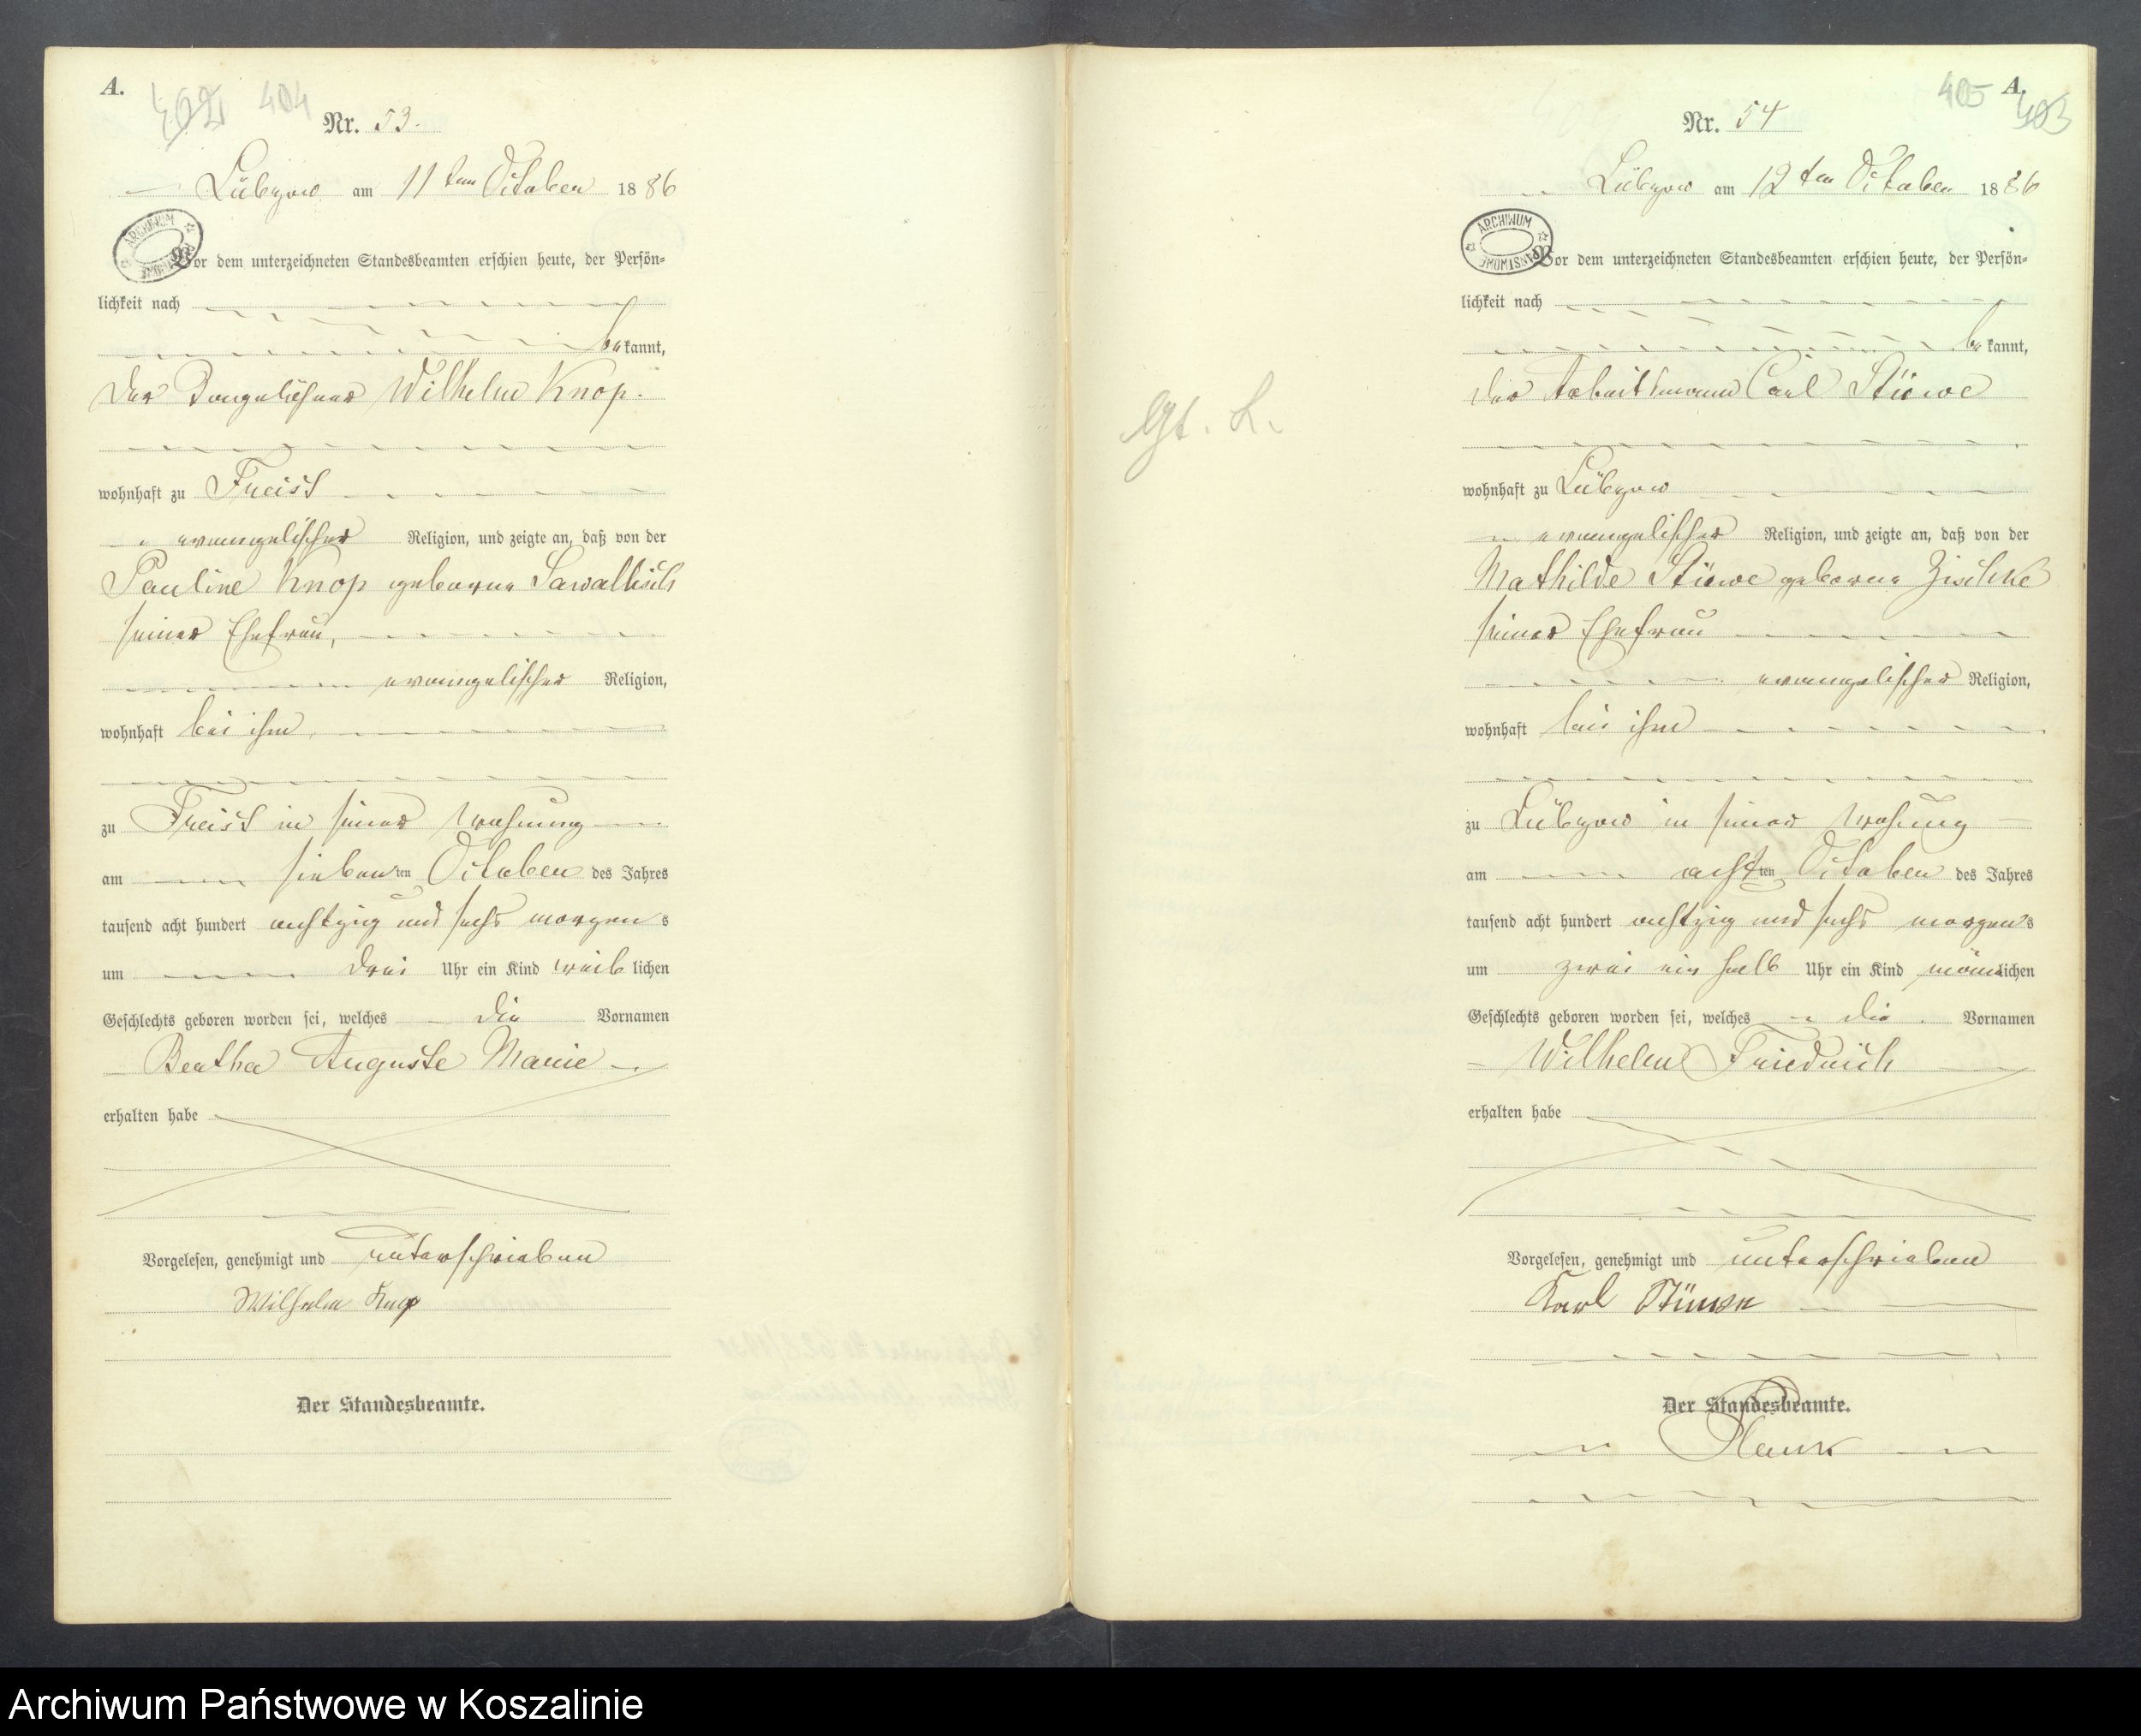 A.
402 404
Nr. 53.
Lübzow am 11ten October 1886
ARCHIWUM PAŃSTWOWE
Vor dem unterzeichneten Standesbeamten erschien heute, der Persön-
lichkeit nach
bekannt,
der Tongelöhner Wilhelm Knop.
wohnhaft zu Freist
evangelischer Religion, und zeigte an, daß von der
Pauline Knop geborne Sawallisch
seiner Ehefrau,
evangelischer Religion,
wohnhaft bei ihm,
zu Freist in seiner Wohnung
am siebenten October des Jahres
tausend acht hundert achtzig und sechs morgens
um drei Uhr ein Kind weiblichen
Geschlechts geboren worden sei, welches die Vornamen
Bertha Auguste Marie
erhalten habe
Vorgelesen, genehmigt und unterschrieben
Wilhelm Knop
Der Standesbeamte.
405 A.
403
Nr. 54
Lübzow am 12ten October 1886
ARCHIWUM PAŃSTWOWE
Vor dem unterzeichneten Standesbeamten erschien heute, der Persön-
lichkeit nach
bekannt,
der Arbeitsmann Carl Stüwe
wohnhaft zu Lübzow
evangelischer Religion, und zeigte an, daß von der
Mathilde Stüwe geborne Zischke
seiner Ehefrau
evangelischer Religion,
wohnhaft bei ihm
zu Lübzow in seiner Wohnung
am achtten October des Jahres
tausend acht hundert achtzig und sechs morgens
um zwei ein halb Uhr ein Kind männlichen
Geschlechts geboren worden sei, welches die Vornamen
Wilhelm Friedrich
erhalten habe
Vorgelesen, genehmigt und unterschrieben
Karl Stüwe
Der Standesbeamte.
Archiwum Państwowe w Koszalinie